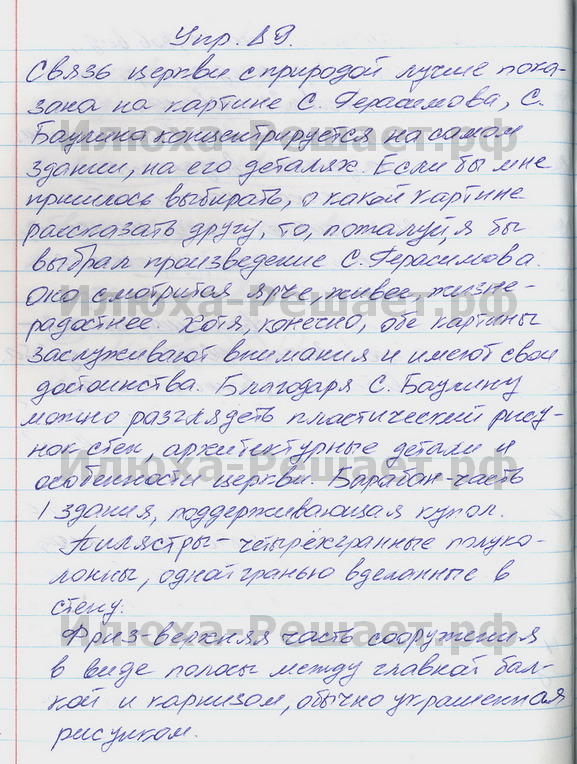 Упр. 19.
Связь церкви с природой лучше пока-
зана на картине С. Герасимова, С.
Баулина концентрируется на самом
здании, на его деталях. Если бы мне
пришлось выбирать, о какой картине
рассказать другу, то, пожалуй, я бы
выбрал произведение С. Герасимова.
Оно смотрится ярче, живее, жизне-
радостнее. Хотя, конечно, обе картины
заслуживают внимания и имеют свои
достоинства. Благодаря С. Баулину
можно разглядеть пластический рису-
нок стен, архитектурные детали и
особенности церкви. Барабан-часть
здания, поддерживающая купол.
Пилястры - четырёхгранные полуко-
лонны, одной гранью вделанные в
стену.
Фриз-верхняя часть сооружения
в виде полосы между главной бал-
кой и карнизом, обычно украшенная
рисунком.
Илюха-Решает.рф
Илюха-Решает.рф
Илюха-Решает.рф
Илюха-Решает.рф